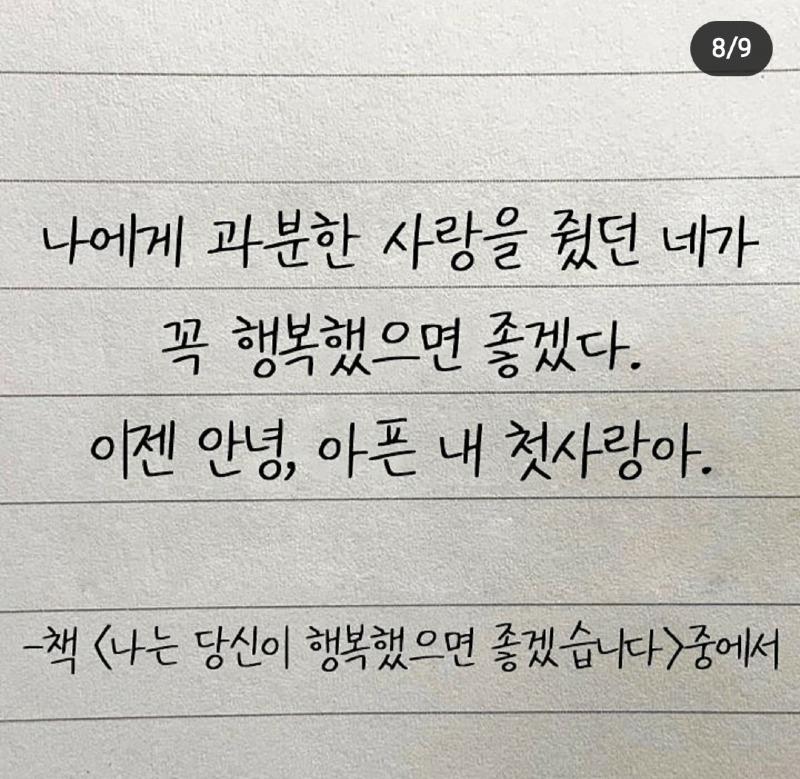 8/9
나에게 과분한 사랑을 줬던 네가
꼭 행복했으면 좋겠다.
이젠 안녕, 아픈 내 첫사랑아.
-책 <나는 당신이 행복했으면 좋겠습니다>중에서